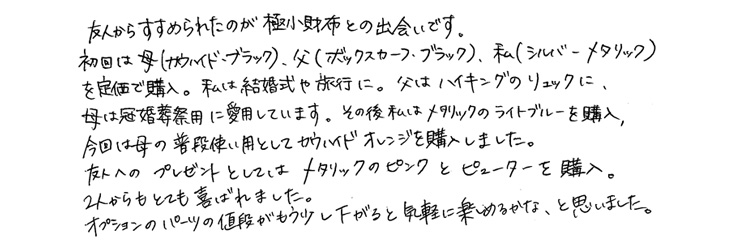 友人からすすめられたのが極小財布との出会いです。
初回は母(カウハイド・ブラック)、父(ボックスカーフ・ブラック)、私(シルバーメタリック)
を定価で購入。私は結婚式や旅行に。父はハイキングのリュックに、
母は冠婚葬祭用に愛用しています。その後私はメタリックのライトブルーを購入,
今回は母の普段使い用としてカウハイドオレンジを購入しました。
友人へのプレゼントとしてはメタリックのピンクとピューターを購入。
2人からもとても喜ばれました。
オプションのパーツの値段がもう少し下がると気軽に楽しめるかな、と思いました。